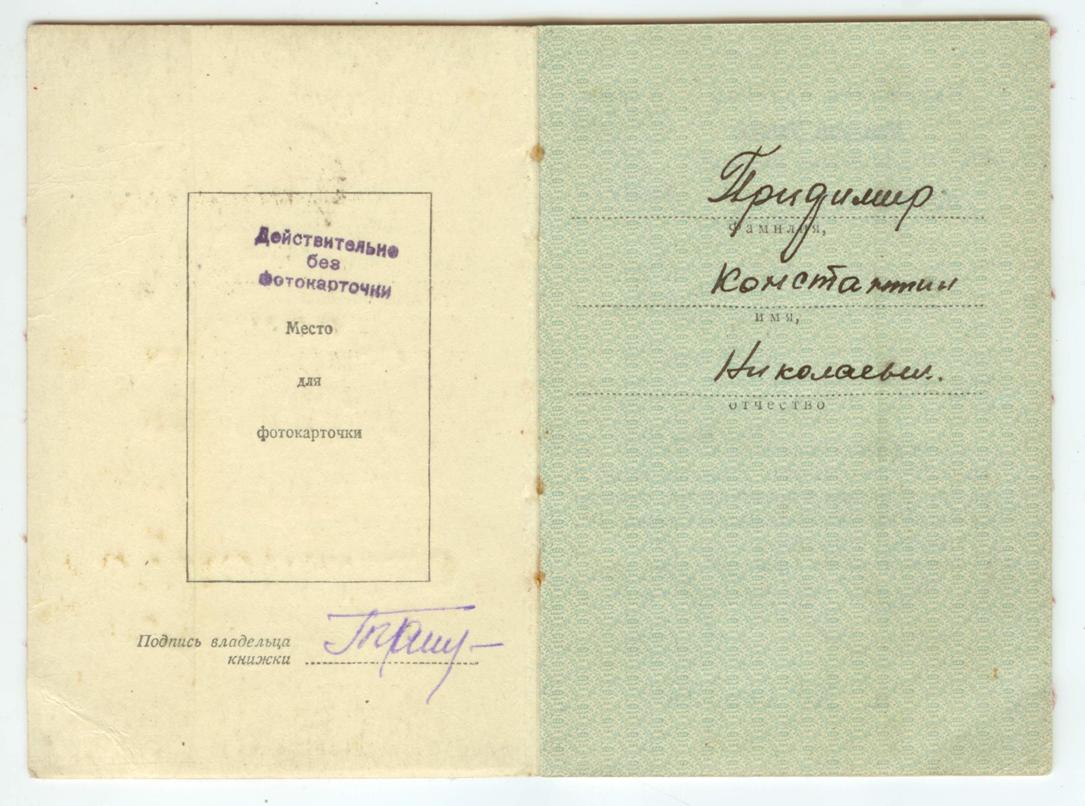 Действительно
без
фотокарточки
Место
для
фотокарточки
Подпись владельца
книжки
Придимир
Фамилия,
Константин
имя,
Николаевич.
отчество